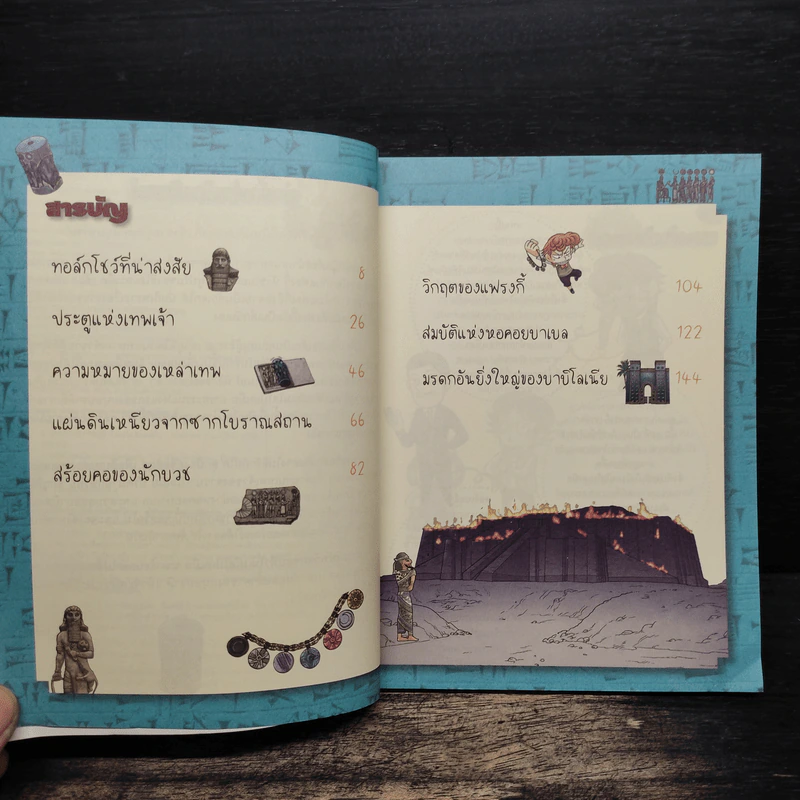 สารบัญ
ทอล์กโชว์ที่น่าสงสัย 8
ประตูแห่งเทพเจ้า 26
ความหมายของเหล่าเทพ 46
แผ่นดินเหนียวจากซากโบราณสถาน 66
สร้อยคอของนักบวช 82
วิกฤตของแฟรงกี้ 104
สมบัติแห่งหอคอยบาเบล 122
มรดกอันยิ่งใหญ่ของบาบิโลเนีย 144